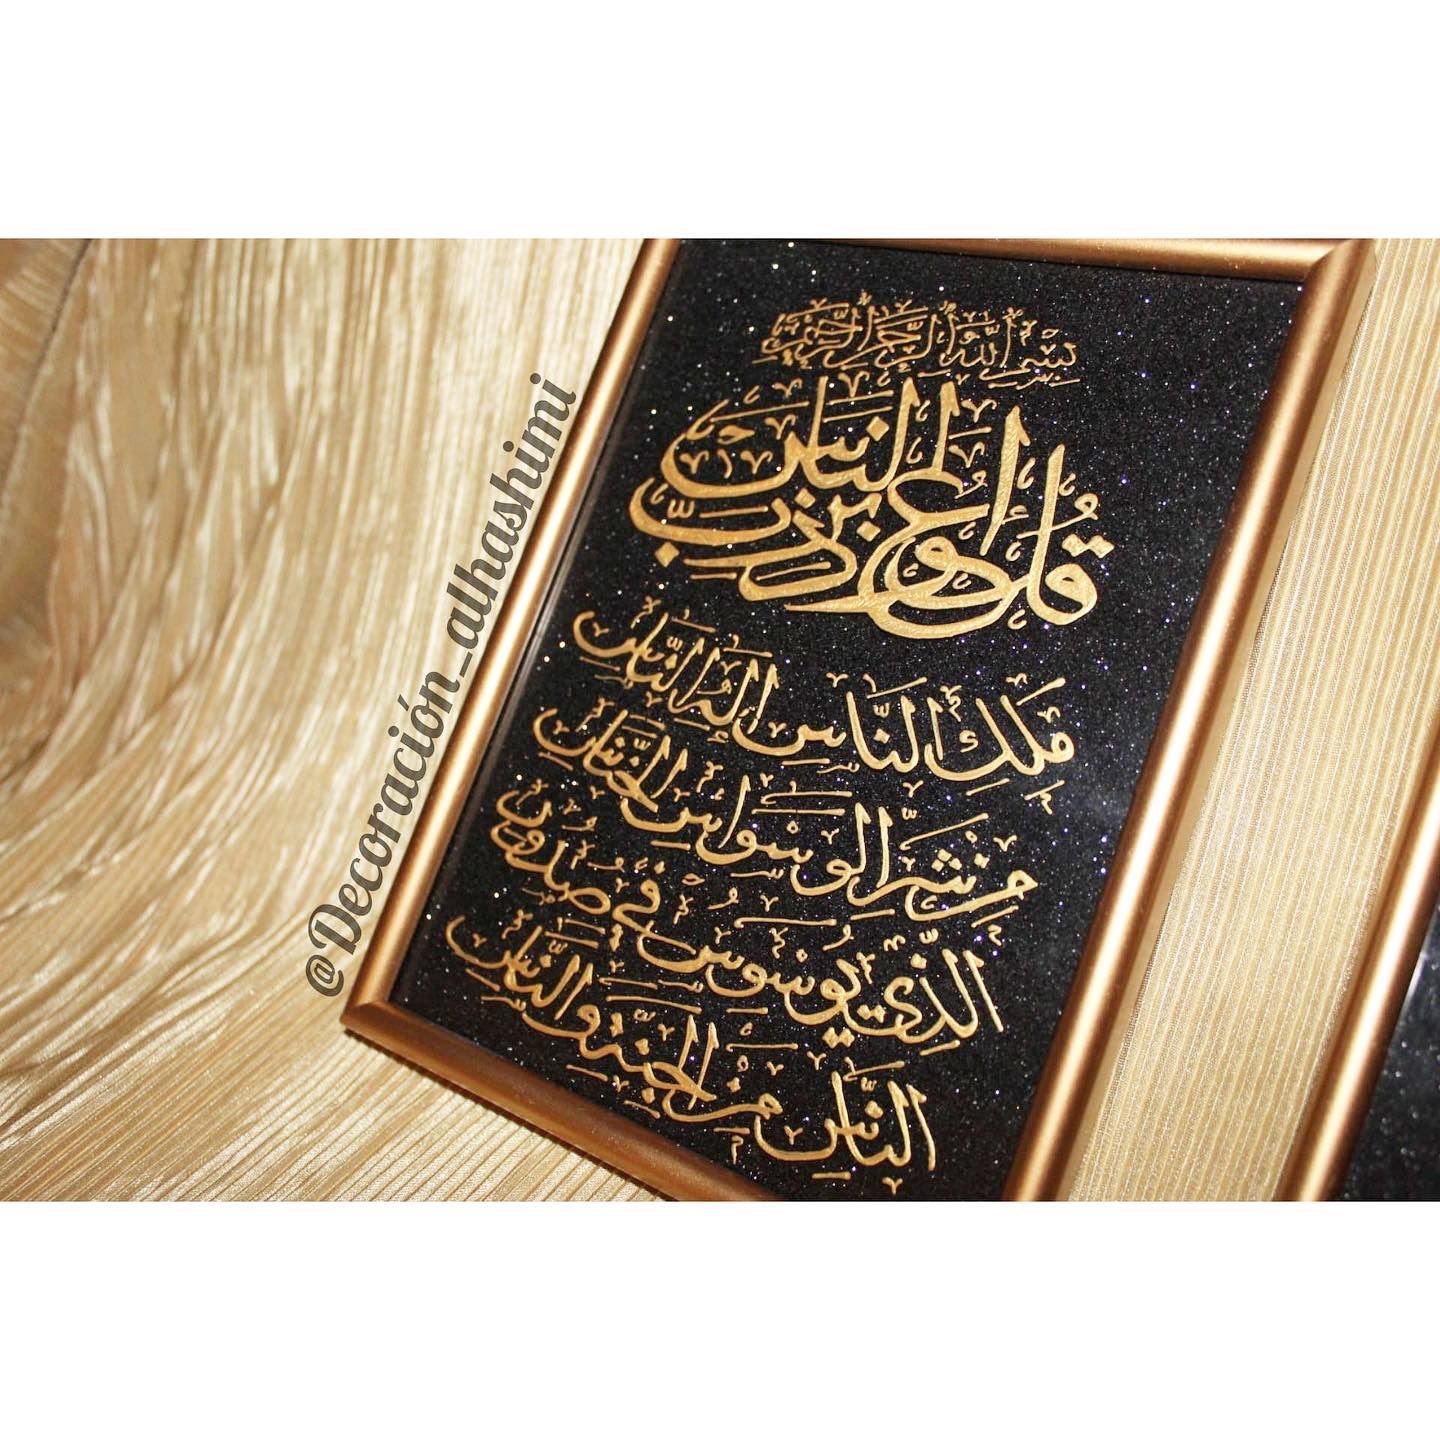 بسم الله الرحمن الرحيم
قل أعوذ برب الناس
مَلِكِ النَّاسِ إِلَهِ النَّاسِ
مِن شَرِّ الْوَسْوَاسِ الْخَنَّاسِ
الَّذِي يُوَسْوِسُ فِي صُدُورِ
النَّاسِ مِنَ الْجِنَّةِ وَالنَّاسِ
@Decoración_alhashimi